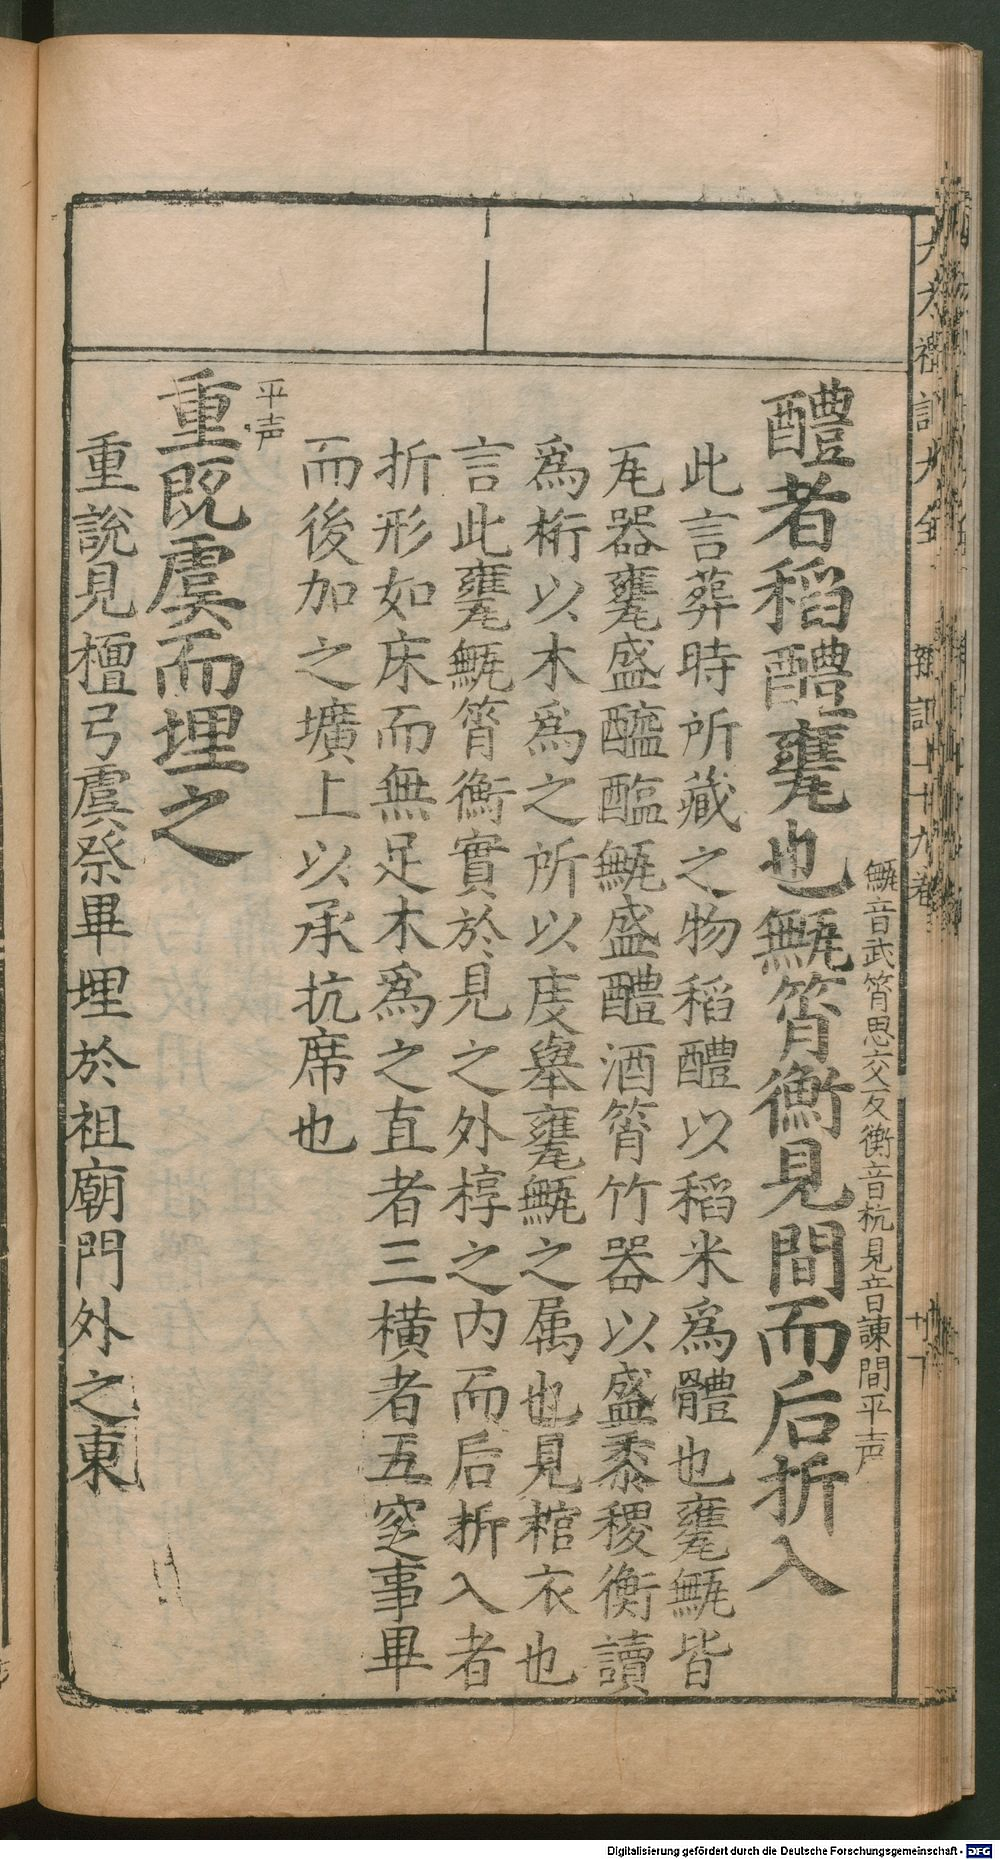 甒音武筲思交反衡音杭見音諫間平声
醴者稻醴甕也甒筲衡見間而后折入
此言葬時所藏之物稻醴以稻米為醴也甕甒皆
瓦器甕盛醯醢甒盛醴酒筲竹器以盛黍稷衡讀
為桁以木為之所以庋舉甕甒之属也見棺衣也
言此甕甒筲衡實於見之外椁之内而后折入者
折形如床而無足木為之直者三橫者五窆事畢
而後加之壙上以承抗席也
平声
重既虞而埋之
重說見檀弓虞祭畢埋於祖廟門外之東
Digitalisierung gefördert durch die Deutsche Forschungsgemeinschaft - DFG